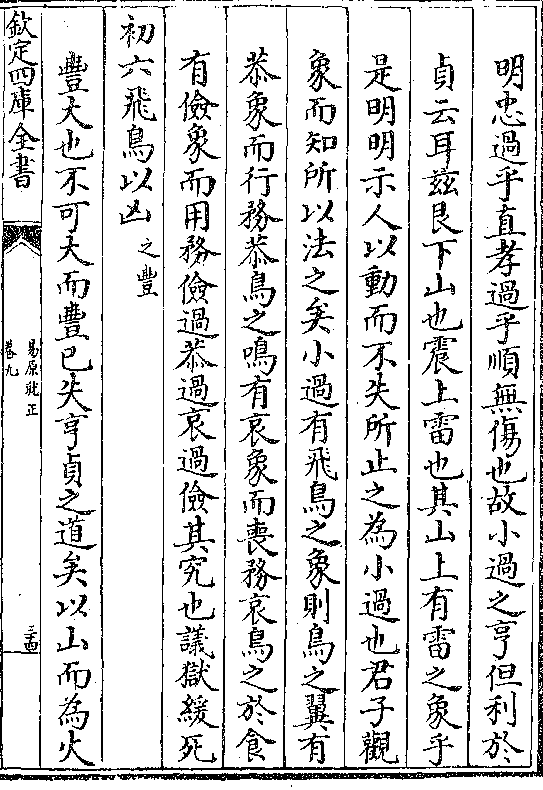 明忠過乎直孝過乎順無傷也故小過之亨但利於
貞云耳兹艮下山也震上雷也其山上有雷之象乎
是明明示人以動而不失所止之為小過也君子觀
象而知所以法之矣小過有飛鳥之象則鳥之翼有
恭象而行務恭鳥之鳴有哀象而喪務哀鳥之於食
有儉象而用務儉過恭過哀過儉其究也議獄緩死
初六飛鳥以凶之豐
豐大也不可大而豐已失亨貞之道矣以山而為火
欽定四庫全書
易原就正
卷九
三四